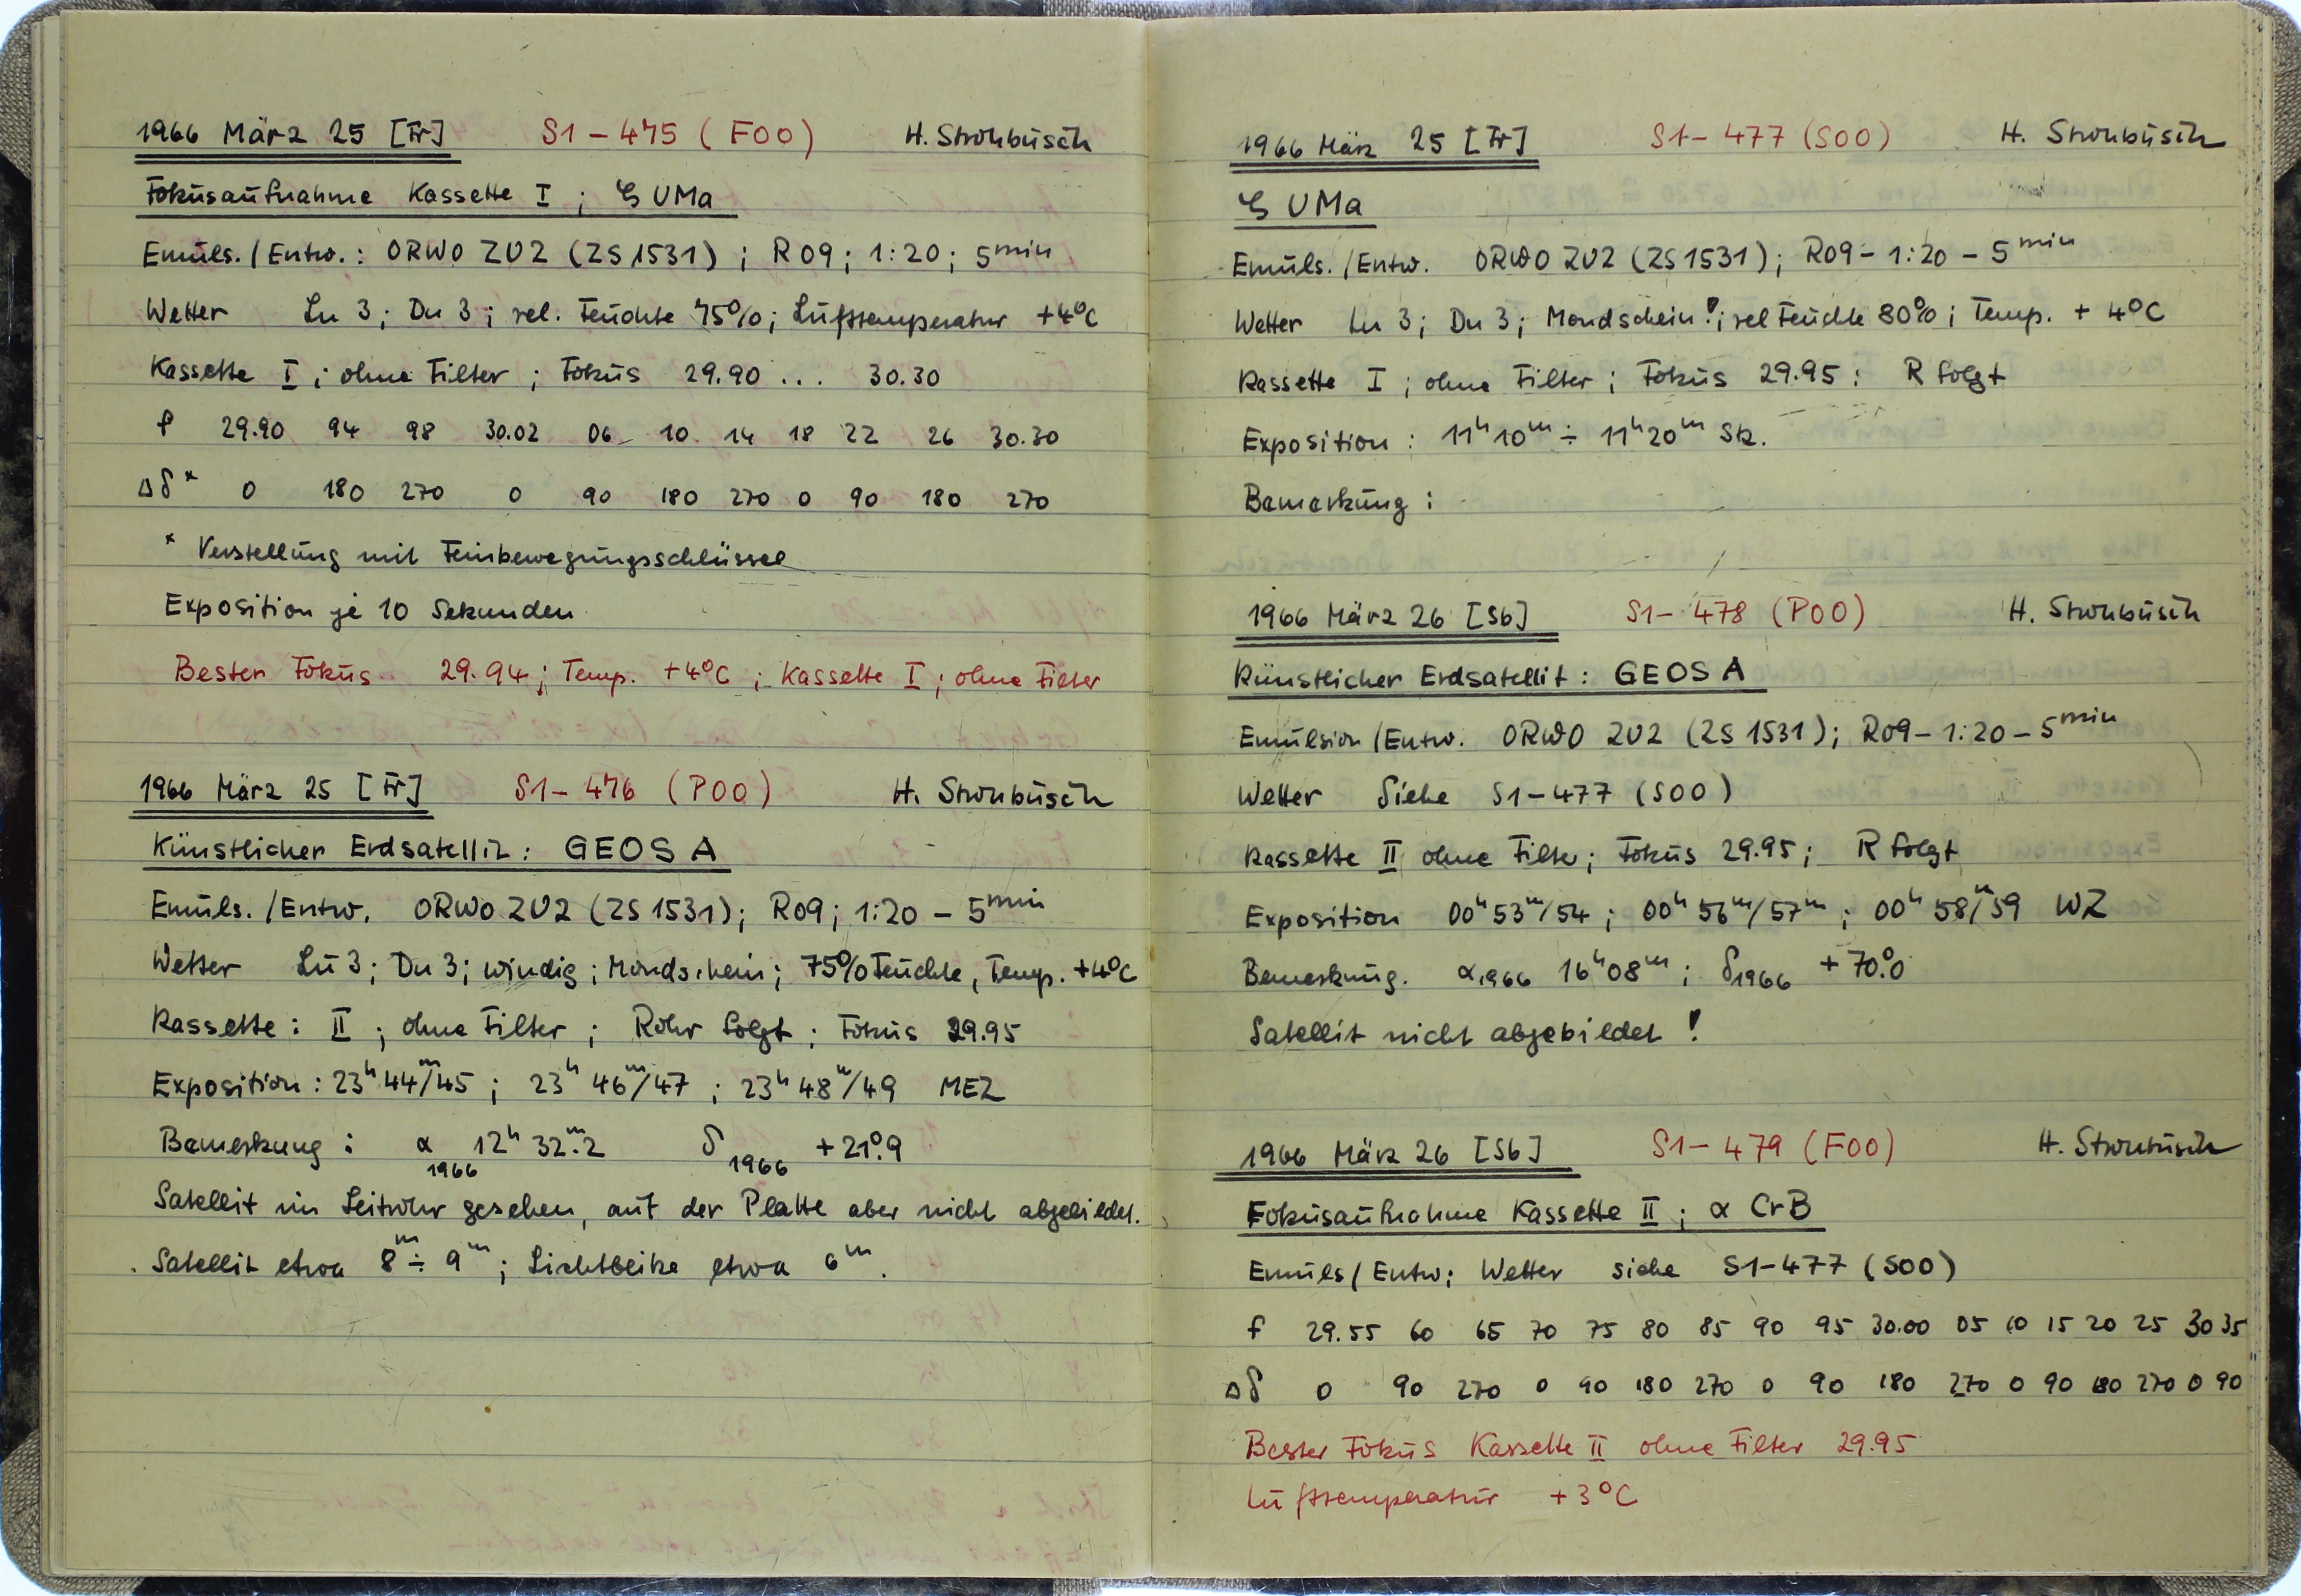 1966 März 25 [Fr] S1-475 (F00) H. Strohbusch
Fokusaufnahme Kassette I ; ζ UMa
Emuls./Entw.: ORWO ZU2 (ZS 1531) ; R09 ; 1:20 ; 5min
Wetter Lu 3 ; Du 3 ; rel. Feuchte 75% ; Lufttemperatur +4°C
Kassette I ; ohne Filter ; Fokus 29.90 ... 30.30
f 29.90 94 98 30.02 06 10 14 18 22 26 30.30
Δδ* 0 180 270 0 90 180 270 0 90 180 270
* Verstellung mit Feinbewegungsschlüssel
Exposition je 10 Sekunden
Bester Fokus 29.94 ; Temp. +4°C ; Kassette I ; ohne Filter
1966 März 25 [Fr] S1-476 (P00) H. Strohbusch
Künstlicher Erdsatellit : GEOS A
Emuls./Entw. ORWO ZU2 (ZS 1531) ; R09 ; 1:20 - 5min
Wetter Lu 3 ; Du 3 ; windig ; Mondschein ; 75% Feuchte, Temp. +4°C
Kassette : II ; ohne Filter ; Rohr folgt ; Fokus 29.95
Exposition : 23h 44m/45 ; 23h 46m/47 ; 23h 48m/49 MEZ
Bemerkung : α 1966 12h 32m.2 δ 1966 +21°.9
Satellit im Leitrohr gesehen, auf der Platte aber nicht abgebildet.
Satellit etwa 8m ÷ 9m ; Lichtblitze etwa 6m.
1966 März 25 [Fr] S1-477 (S00) H. Strohbusch
ζ UMa
Emuls./Entw. ORWO ZU2 (ZS 1531) ; R09 - 1:20 - 5min
Wetter Lu 3 ; Du 3 ; Mondschein! ; rel Feuchte 80% ; Temp. + 4°C
Kassette I ; ohne Filter ; Fokus 29.95 ; R folgt
Exposition : 11h 10m ÷ 11h 20m Stz.
Bemerkung :
1966 März 26 [Sb] S1-478 (P00) H. Strohbusch
Künstlicher Erdsatellit : GEOS A
Emulsion/Entw. ORWO ZU2 (ZS 1531) ; R09 - 1:20 - 5min
Wetter Siehe S1-477 (S00)
Kassette II ohne Filter ; Fokus 29.95 ; R folgt
Exposition 00h 53m/54 ; 00h 56m/57m ; 00h 58m/59 WZ
Bemerkung. α1966 16h 08m ; δ1966 +70°.0
Satellit nicht abgebildet !
1966 März 26 [Sb] S1-479 (F00) H. Strohbusch
Fokusaufnahme Kassette II ; α CrB
Emuls/Entw ; Wetter siehe S1-477 (S00)
f 29.55 60 65 70 75 80 85 90 95 30.00 05 10 15 20 25 30 35
Δδ 0 90 270 0 90 180 270 0 90 180 270 0 90 180 270 0 90
Bester Fokus Kassette II ohne Filter 29.95
Lufttemperatur +3°C